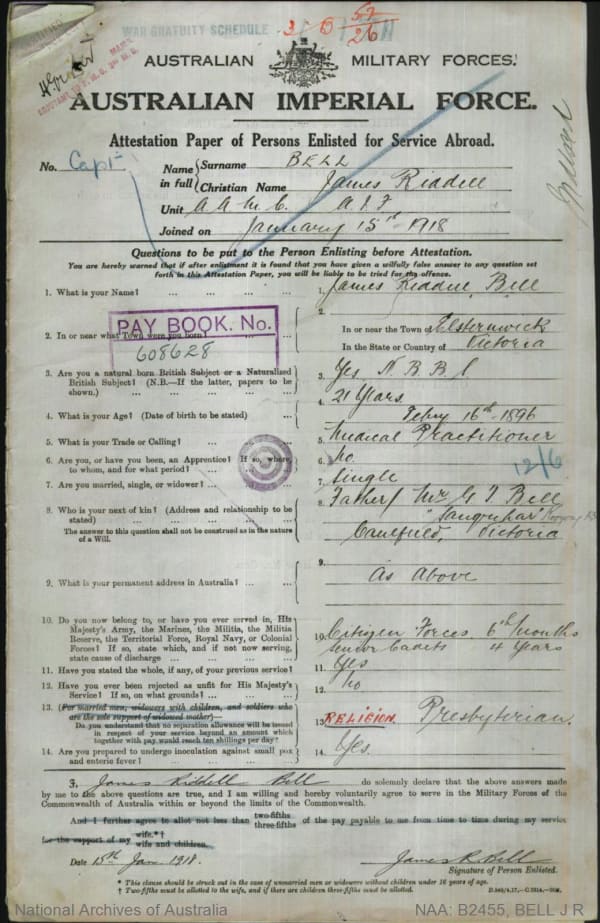 WAR GRATUITY SCHEDULE
3 6 57/26
AUSTRALIAN MILITARY FORCES.
AUSTRALIAN IMPERIAL FORCE.
Attestation Paper of Persons Enlisted for Service Abroad.
No. Capt
Name in full { Surname BELL
Christian Name James Riddell
Unit A A M C. A.I.F
Joined on January 15th 1918
Questions to be put to the Person Enlisting before Attestation.
You are hereby warned that if after enlistment it is found that you have given a wilfully false answer to any question set
forth in this Attestation Paper, you will be liable to be tried for the offence.
1. What is your Name? ... ... ... ... 1. James Riddell Bell
PAY BOOK. No.
608628
2. In or near what Town were you born? ... 2. In or near the Town of Elsternwick
In the State or Country of Victoria
3. Are you a natural born British Subject or a Naturalized
British Subject? (N.B.—If the latter, papers to be
shown.) ... ... ... ... 3. Yes N B B S
4. What is your Age? (Date of birth to be stated) ... 4. 21 Years
Feby 16th 1896
5. What is your Trade or Calling? ... ... ... 5. Medical Practitioner
6. Are you, or have you been, an Apprentice? If so, where,
to whom, and for what period? ... ... 6. no
12/6
7. Are you married, single, or widower? ... ... 7. Single
8. Who is your next of kin? (Address and relationship to be
stated) ... ... ... ... 8. Father Mr G T Bell
The answer to this question shall not be construed as in the nature
of a Will.
"Sanquhar" Kooyong Rd
Caulfield, Victoria
9. What is your permanent address in Australia? ... ... 9. As above
10. Do you now belong to, or have you ever served in, His
Majesty's Army, the Marines, the Militia, the Militia
Reserve, the Territorial Force, Royal Navy, or Colonial
Forces? If so, state which, and if not now serving,
state cause of discharge ... ... ... 10. Citizen Forces 6 months
Senior Cadets 4 Years
11. Have you stated the whole, if any, of your previous service? 11. Yes
12. Have you ever been rejected as unfit for His Majesty's
Service? If so, on what grounds? ... ... 12. no
13. (For married men, widowers with children, and soldiers who
are the sole support of widowed mother)—
Do you understand that no separation allowance will be issued
in respect of your service beyond an amount which
together with pay would reach ten shillings per day? 13. RELIGION. Presbyterian.
14. Are you prepared to undergo inoculation against small pox
and enteric fever? ... ... ... 14. Yes.
I, James Riddell Bell do solemnly declare that the above answers made
by me to the above questions are true, and I am willing and hereby voluntarily agree to serve in the Military Forces of the
Commonwealth of Australia within or beyond the limits of the Commonwealth.
And I further agree to allot not less than two-fifths three-fifths of the pay payable to me from time to time during my service
for the support of my wife.*† wife and children.
Date 15th Jan 1918. James R. Bell
Signature of Person Enlisted.
* This clause should be struck out in the case of unmarried men or widowers without children under 16 years of age.
† Two-fifths must be allotted to the wife, and if there are children three-fifths must be allotted.
National Archives of Australia NAA: B2455, BELL J R